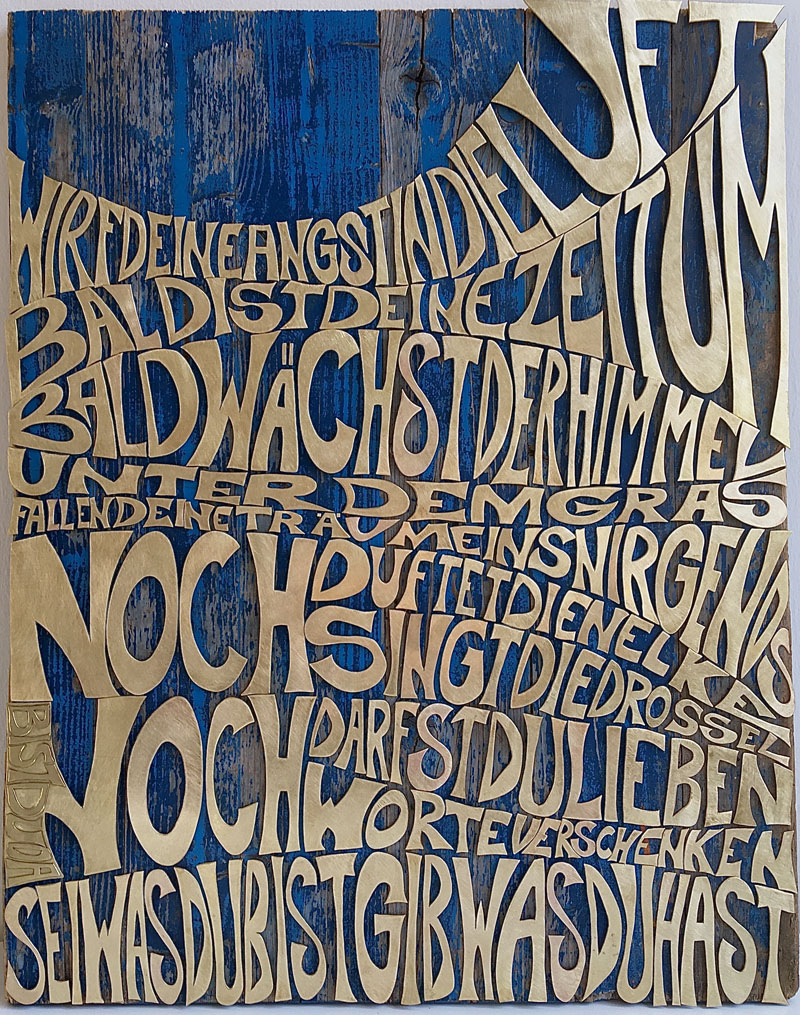 WIRF DEINE ANGST IN DIE LUFT
BALD IST DEINE ZEIT UM
BALD WÄCHST DER HIMMEL
UNTER DEM GRAS
FALLEN DEINE TRÄUME INS NIRGENDS
NOCH DUFTET DIE NELKE
SINGT DIE DROSSEL
NOCH DARFST DU LIEBEN
WORTE VERSCHENKEN
BIST DU DA
SEI WAS DU BIST GIB WAS DU HAST